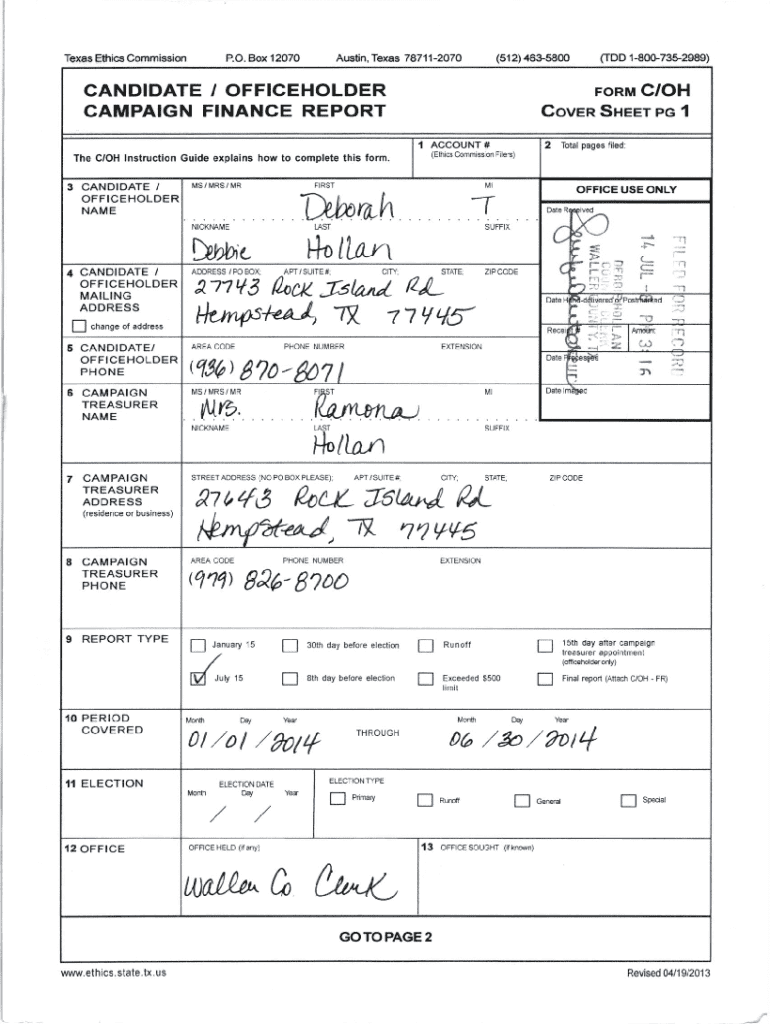 Texas Ethics Commission P.O. Box 12070 Austin, Texas 78711-2070 (512) 463-5800 (TDD 1-800-735-2989)
CANDIDATE / OFFICEHOLDER
CAMPAIGN FINANCE REPORT
FORM C/OH
COVER SHEET PG 1
The C/OH Instruction Guide explains how to complete this form.
1 ACCOUNT #
(Ethics Commission Filers)
2 Total pages filed:
3 CANDIDATE /
OFFICEHOLDER
NAME
MS / MRS / MR FIRST MI
Deborah T
NICKNAME LAST SUFFIX
Debbie Hollan
OFFICE USE ONLY
Date Received
FILED FOR RECORD
14 JUL
PM 3:16
DEBBIE HOLLAN
WALLER COUNTY, TX
Date Hand-delivered or Postmarked
Receipt # Amount
Date Processed
Date Imaged
4 CANDIDATE /
OFFICEHOLDER
MAILING
ADDRESS
change of address
ADDRESS / PO BOX; APT / SUITE #; CITY; STATE; ZIP CODE
27743 Rock Island Rd
Hempstead, TX 77445
5 CANDIDATE/
OFFICEHOLDER
PHONE
AREA CODE PHONE NUMBER EXTENSION
(936) 870-8071
6 CAMPAIGN
TREASURER
NAME
MS / MRS / MR FIRST MI
Mrs. Ramona
NICKNAME LAST SUFFIX
Hollan
7 CAMPAIGN
TREASURER
ADDRESS
(residence or business)
STREET ADDRESS (NO PO BOX PLEASE); APT / SUITE #; CITY; STATE; ZIP CODE
27643 Rock Island Rd
Hempstead, TX 77445
8 CAMPAIGN
TREASURER
PHONE
AREA CODE PHONE NUMBER EXTENSION
(979) 826-8700
9 REPORT TYPE
January 15 30th day before election Runoff 15th day after campaign
treasurer appointment
(officeholder only)
July 15 8th day before election Exceeded $500
limit
Final report (Attach C/OH - FR)
10 PERIOD
COVERED
Month Day Year Month Day Year
01 / 01 / 2014 THROUGH 06 / 30 / 2014
11 ELECTION
ELECTION DATE
Month Day Year
/ /
ELECTION TYPE
Primary Runoff General Special
12 OFFICE
OFFICE HELD (if any)
Waller Co Clerk
13 OFFICE SOUGHT (if known)
GO TO PAGE 2
www.ethics.state.tx.us Revised 04/19/2013